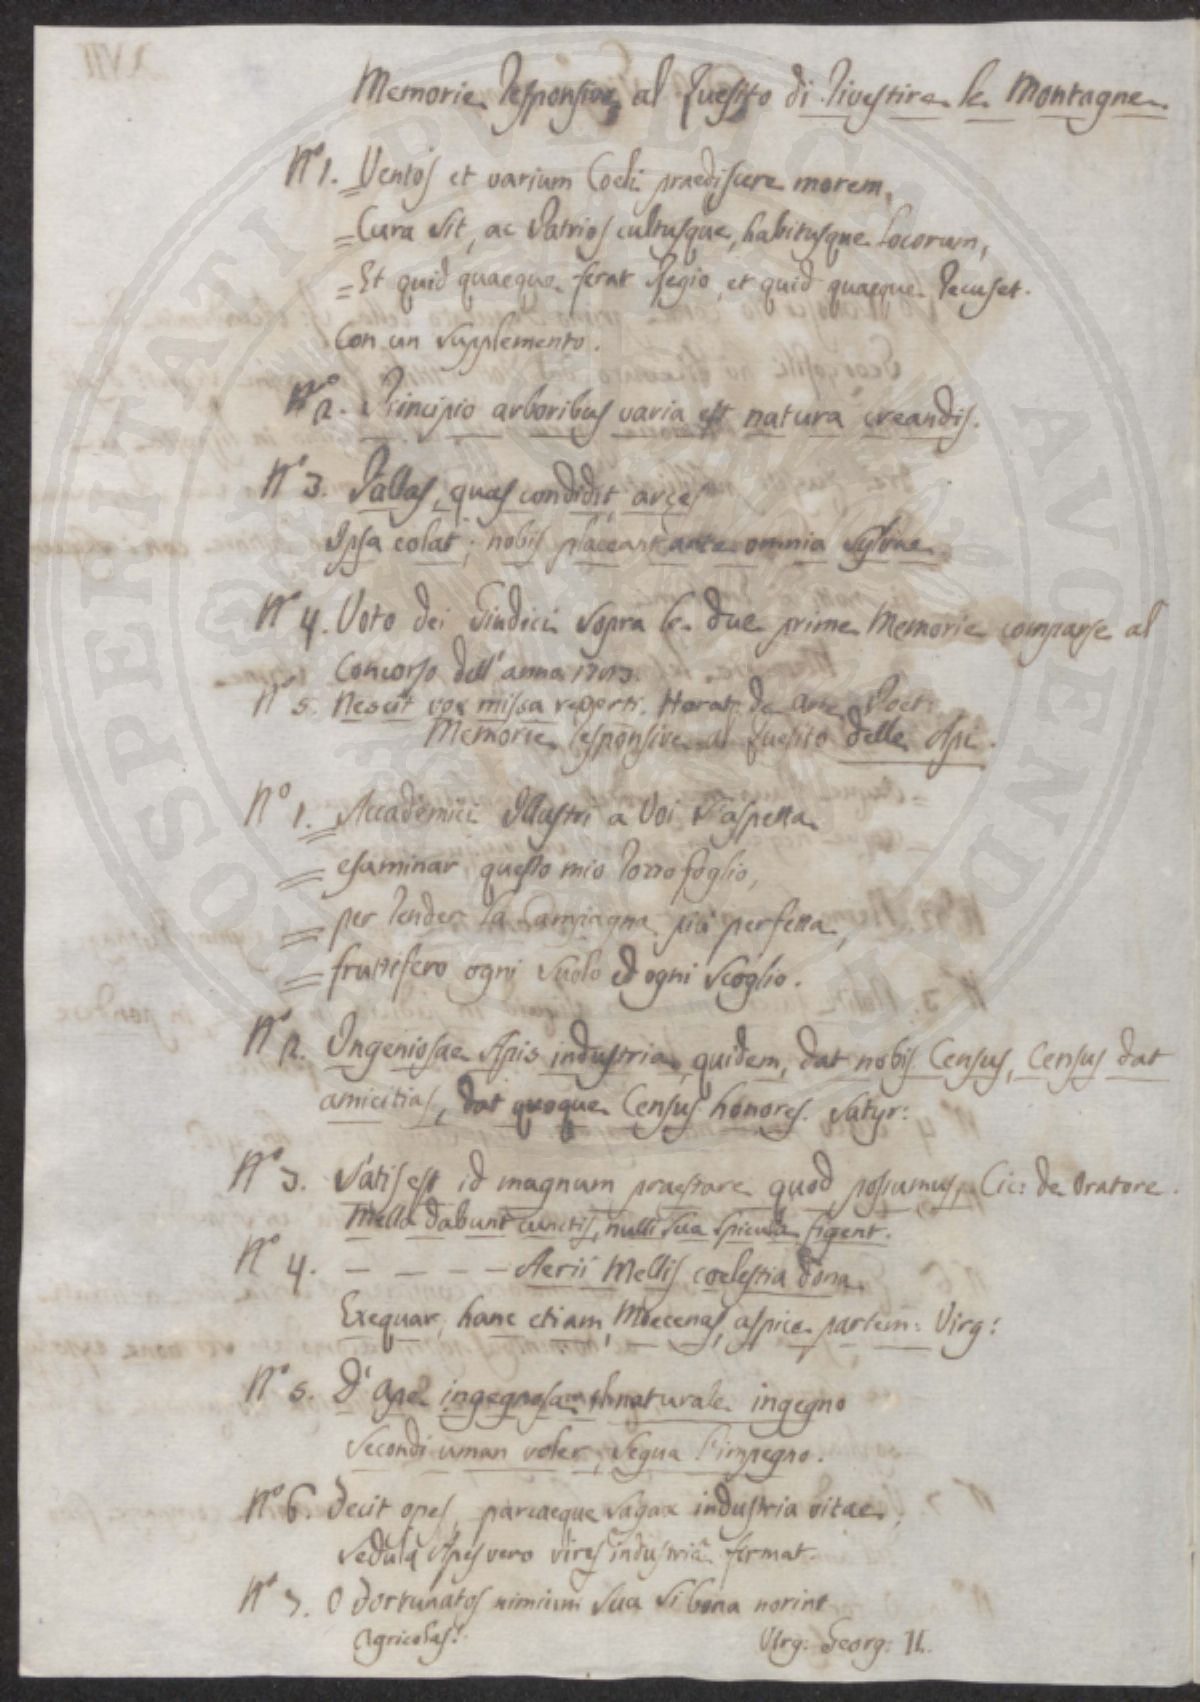 Memorie Responsive al Quesito di Rivestire le Montagne
N.º 1. Ventos et varium Coeli praediscere morem,
= Cura sit, ac Patrios cultusque, habitusque Locorum,
= Et quid quaeque ferat Regio, et quid quaeque Recuset.
Con un supplemento.
N.º 2. Principio arboribus varia est natura creandis.
N.º 3. Pallas, quas condidit, arces
Ipsa colat; nobis placeant ante omnia Sylvae
N.º 4. Voto dei Giudici sopra le due prime Memorie comparse al
Concorso dell'anno
N.º 5. Nescit vox missa reverti. Horat: de Arte Poet:
Memorie Responsive al Quesito delle Api.
N.º 1. Accademici Illustri a Voi s'aspetta
= esaminar questo mio Rozzo foglio,
= per Render la Campagna più perfetta,
= fruttifero ogni suolo ed ogni scoglio.
N.º 2. Ingeniosae Apis industria, quidem, dat nobis Census, Census dat
amicitias, dat quoque Census honores. Satyr:
N.º 3. Satis est id magnum praestare quod possumus, Cic: de Oratore.
Mella dabunt cunctis, nulli sua spicula figent.
N.º 4. - - - - Aerii Mellis coelestia dona
Exequar, hanc etiam, Moecenas, aspice partem: Virg:
N.º 5. D'Ape ingegnosa naturale ingegno
Secondi uman voler, segua l'impegno.
N.º 6. Decit opes, parcaeque sagax industria vitae,
sedula Apes vero vires industria firmat.
N.º 7. O Fortunatos nimium sua si bona norint
Agricolas! Virg: Georg: II.
XVII
SOSPERITATI PUBLICAE AUGENDAE